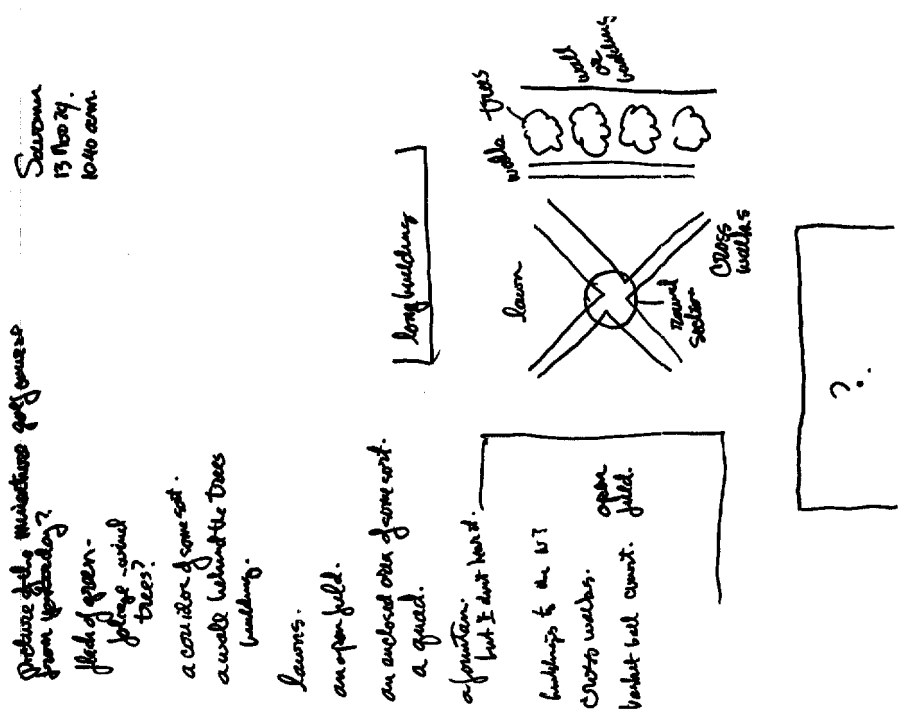 13 Nov 79.
1040 am.
Picture of the miniature golf course
from yesterday?
flash of green-
foliage - wind
trees?
a corridor of some sort.
a walk behind the trees
building.
lawns.
an open field.
an enclosed area of some sort.
a quad.
a fountain.
but I don't hear it.
buildings to the N?
cross walks.
basket ball court.
open
field.
long building
lawn
round
section
cross
walks
walk
trees
wall
or
building
?.